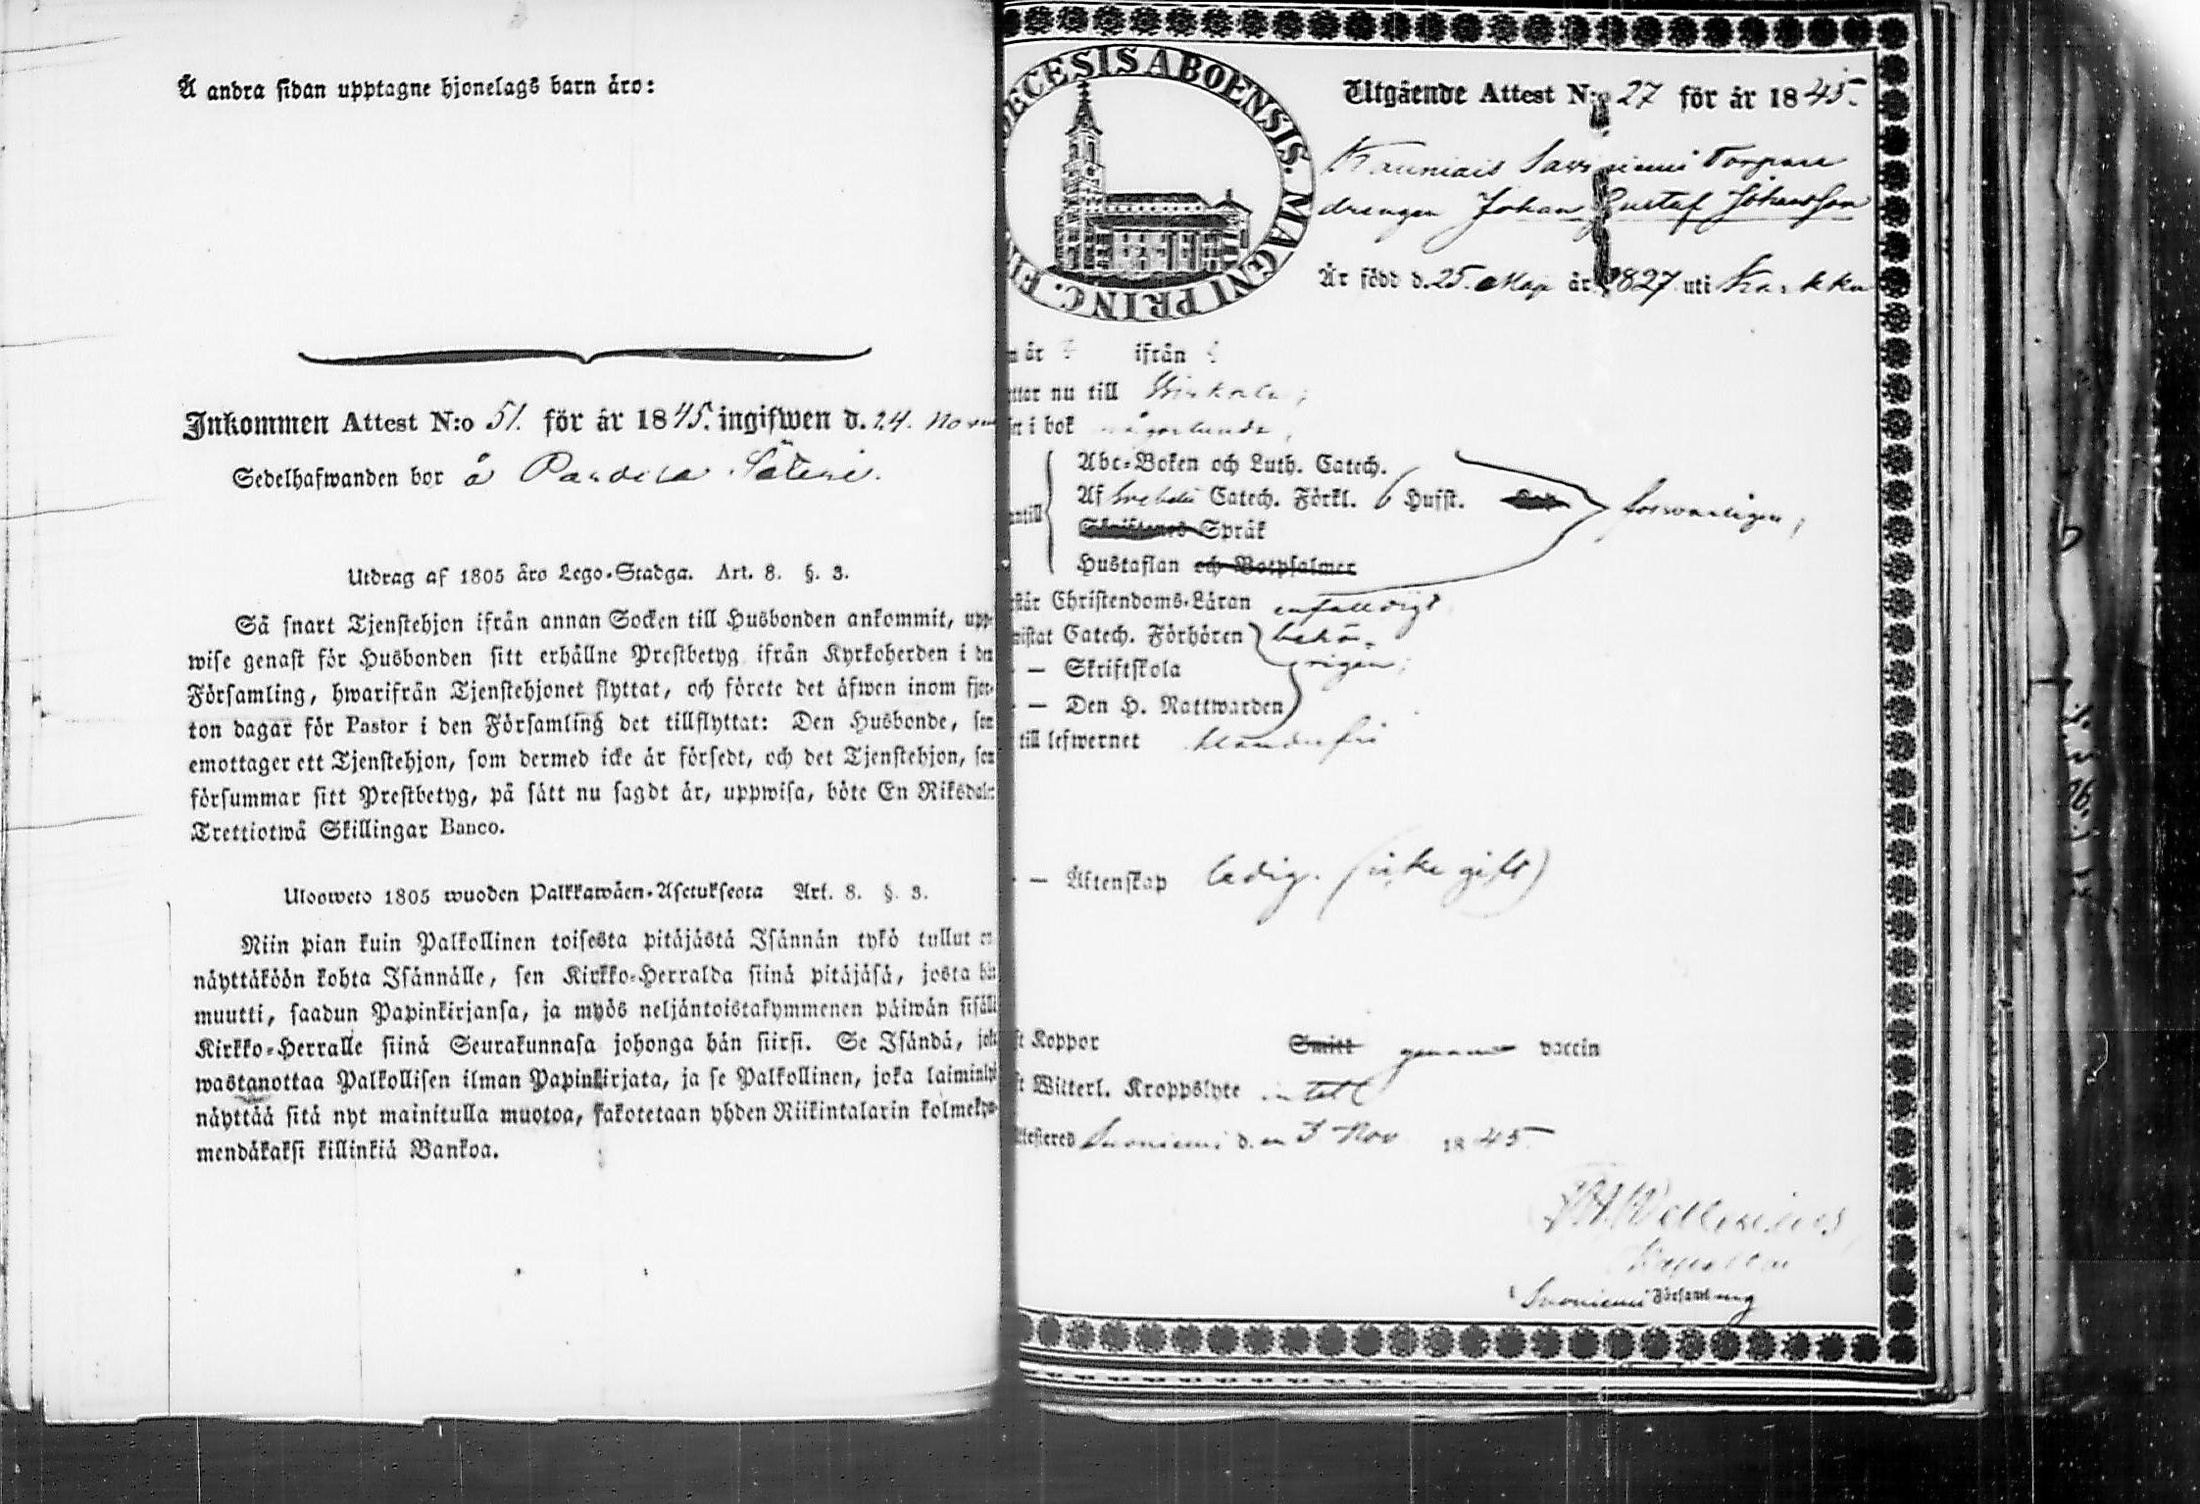 Å andra sidan upptagne hjonelags barn äro:
Inkommen Attest N:o 51. för år 1845. ingifwen d. 24. Novem
Sedelhafwanden bor å Säteri.
Utdrag af 1805 års Lego-Stadga. Art. 8. §. 3.
Så snart Tjenstehjon ifrån annan Socken till Husbonden ankommit, upp-
wise genast för Husbonden sitt erhållne Prestbetyg ifrån Kyrkoherden i den
Församling, hwarifrån Tjenstehjonet flyttat, och förete det äfwen inom fjor-
ton dagar för Pastor i den Församling det tillflyttat: Den Husbonde, som
emottager ett Tjenstehjon, som dermed icke är försedt, och det Tjenstehjon, som
försummar sitt Prestbetyg, på sätt nu sagdt är, uppwisa, böte En Riksdaler
Trettiotwå Skillingar Banco.
Uloosweto 1805 wuoden Palkkawäen-Asetuksesta Art. 8. §. 3.
Niin pian kuin Palkollinen toisesta pitäjästä Isännän tykö tullut on
näyttäköön kohta Isännälle, sen Kirkko-Herralda siinä pitäjäsä, josta hän
muutti, saadun Papinkirjansa, ja myös neljäntoistakymmenen päiwän sisällä
Kirkko-Herralle siinä Seurakunnasa johonga hän siirsi. Se Isändä, joka
wastanottaa Palkollisen ilman Papinkirjata, ja se Palkollinen, joka laiminlyö
näyttää sitä nyt mainitulla muotoa, sakotetaan yhden Riikintalarin kolmekym-
mendäkaksi killinkiä Bankoa.
ECESIS ABOENSIS. MAGNI PRINC. FI
Utgående Attest N:o 27 för år 1845.
Torpare
drengen Johan Gustaf Johansson
Är född d. 25. Maji år 1827 uti Karkku
n år ifrån
ttar nu till Birkala;
er i bok någorlunda,
Abc-Boken och Luth. Catech.
Af Svebelii Catech. Förkl. 6 Hufst.
antill Språk
Hustaflan och Botpsalmer
forsvarligen;
står Christendoms-Läran enfaldigt
wistat Catech. Förhören behö-
— Skriftskola rigen;
— Den H. Nattwarden
till lefwernet klanderfri
— Äktenskap ledig. (icke gift)
ft Koppor Smitt genom vaccin
ft Witterl. Kroppslyte intet
ttesteres Suoniemi d. en 3 Nov 1845.
Wallenius
Kapellan
i Suoniemi Församling